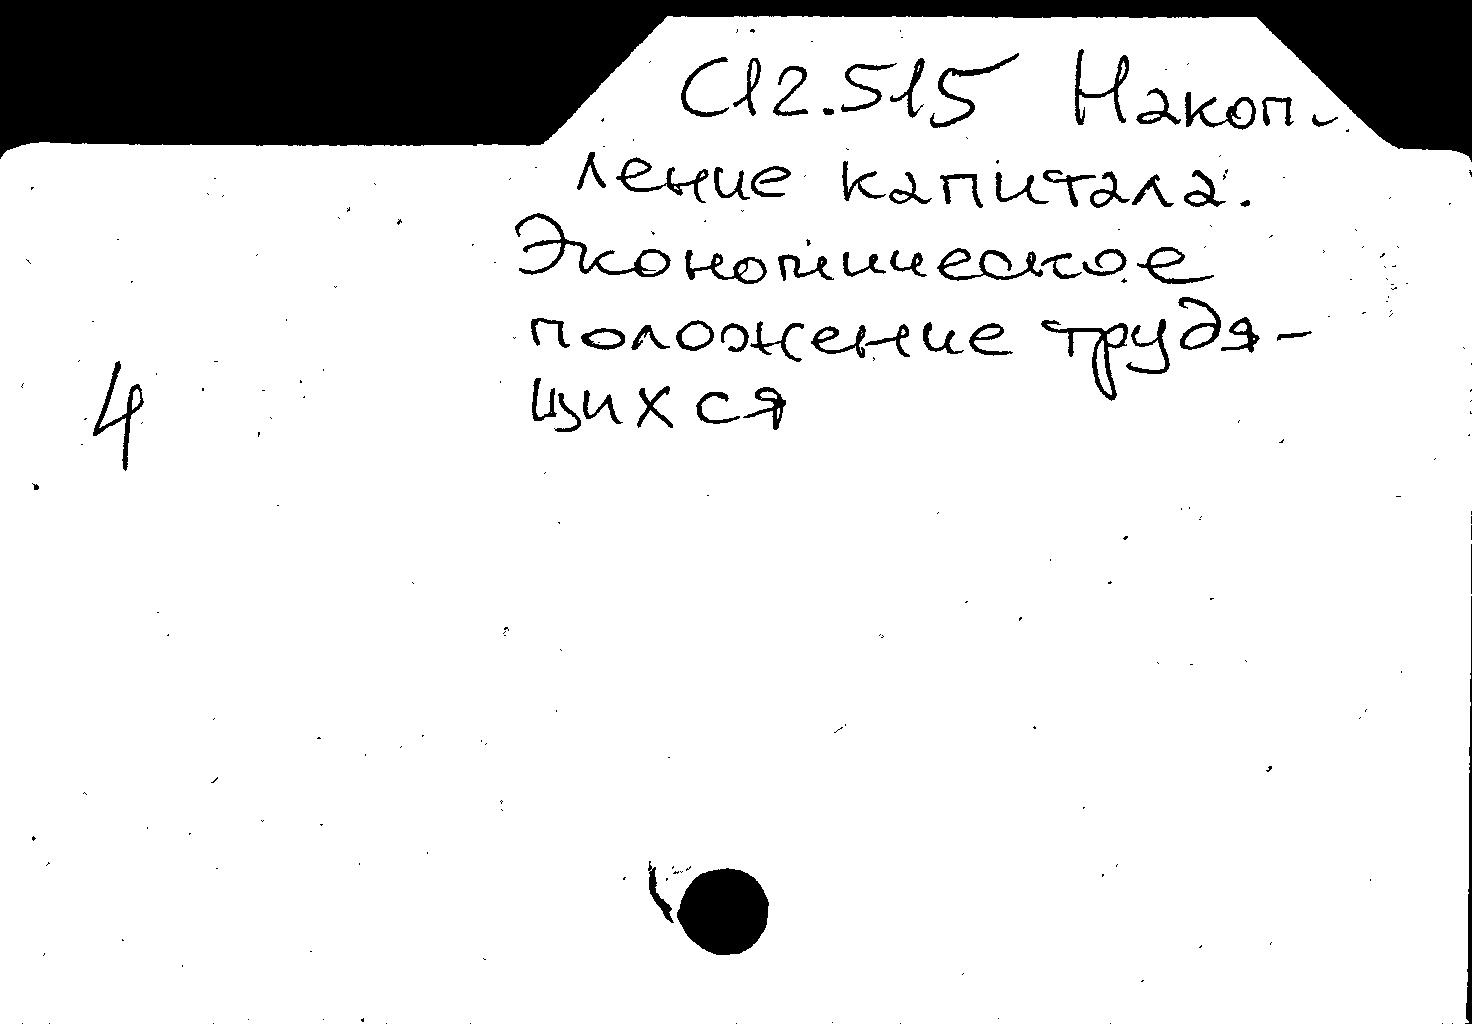 С12.515 Накоп-
ление капитала.
Экономическое
положение трудя-
щихся
4